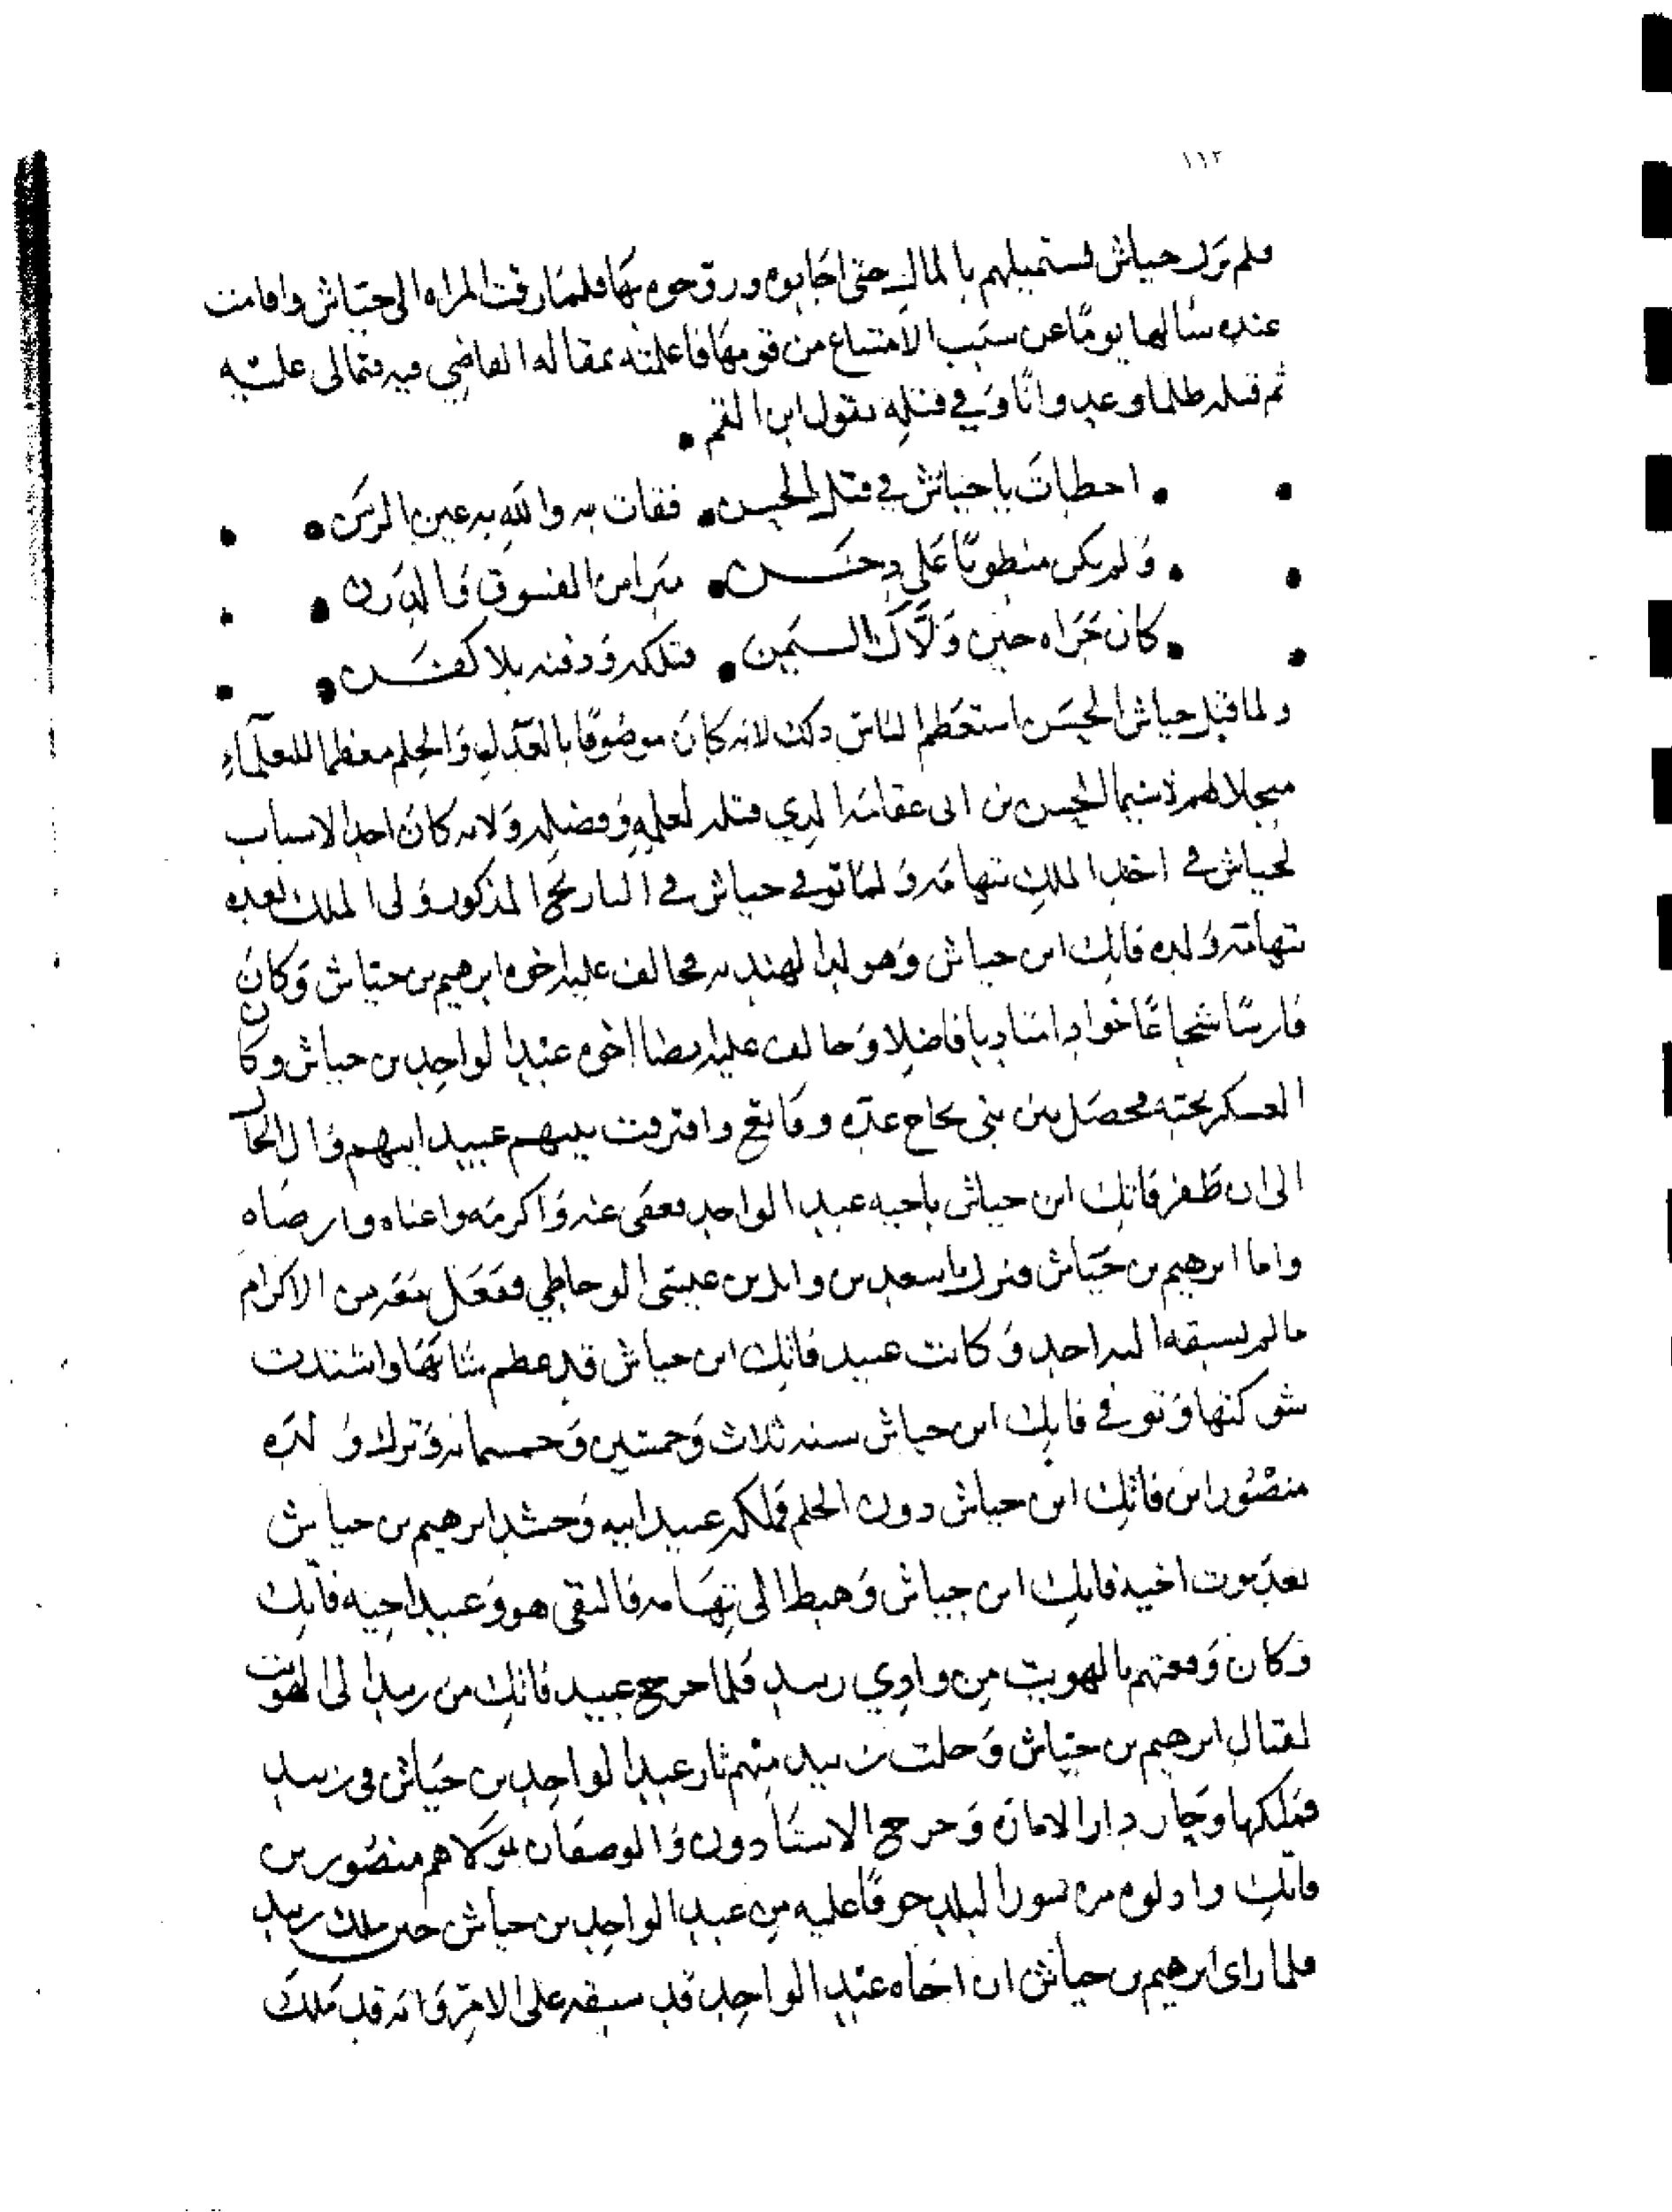 ١١٢
فلم يزل جياش يستميلهم بالمال حتى اجابوه وزوجوه بها فلما زفت المراه الى جياش واقامت
عنده سألها يومًا عن سبب الامتناع من قومها فاعلمته بمقاله القاضي فيه فتمالى عليه
ثم قتله ظلما وعدوانًا وفي قتله يقول ابن القم
اخطات يا جياش في قتل الحسن فقات به والله به عين الزمن
ولم يكن منطويًا على دخن مبرا من الفسوق والدرن
كان جزاه حين ولاك اليمن قتلكه ودفنه بلا كفن
ولما قتل جياش الحسن استعظم الناس ذلك لانه كان موصوفًا بالعدل والحلم معظما للعلماء
مبجلا لهم لا سيما الحسن بن ابى عقامه الذي قتله لعلمه وفضله ولانه كان احد الاسباب
لجياش في اخذ الملك بتهامه ولما توفي جياش في التاريخ المذكور ولى الملك بعده
بتهامة ولده فاتك ابن جياش وهو لدا لهنديه فخالف عليه اخوه ابرهيم بن جياش وكان
فارسًا شجاعًا جوادا متادبا فاضلا وخالف عليه ايضا اخوه عبد الواحد بن جياش وكان
العسكر يحبه فحصل بين بنى نجاح عده وقايع وافترقت بينهم عبيد ابيهم وال الحا ر
الى ان ظفر فاتك ابن جياش باخيه عبد الواحد فعفى عنه واكرمه واغناه وارضاه
واما ابرهيم بن جياش فنزل باسعد بن وايل بن عيسى الوحاظي ففعل معه من الاكرام
ما لم يسبقه اليه احد وكانت عبيد فاتك ابن جياش قد عظم شانها واشتدت
شوكتها وتوفي فاتك ابن جياش سنه ثلاث وخمسين وخمسمانه وترك ولده
منصور ابن فاتك ابن جياش دون الحلم فملكه عبيد ابيه وحشد ابرهيم بن جياش
بعد موت اخيه فاتك ابن جياش وهبط الى تهامه فالتقى هو وعبيد اخيه فاتك
وكان وقعتهم بالهويب من وادي زبيد فلما خرج عبيد فاتك من زبيد الى الهويب
لقتال ابرهيم بن جياش وخلت زبيد منهم ثار عبد الواحد بن جياش في زبيد
فملكها وحاز دار الامان وخرج الاستادون والوصفان بمولاهم منصور بن
فاتك وادلوه من سور البلد خوفًا عليه من عبد الواحد بن جياش حين ملك زبيد
فلما راى ابرهيم بن جياش ان اخاه عبد الواحد قد سبقه على الامر وانه قد ملك